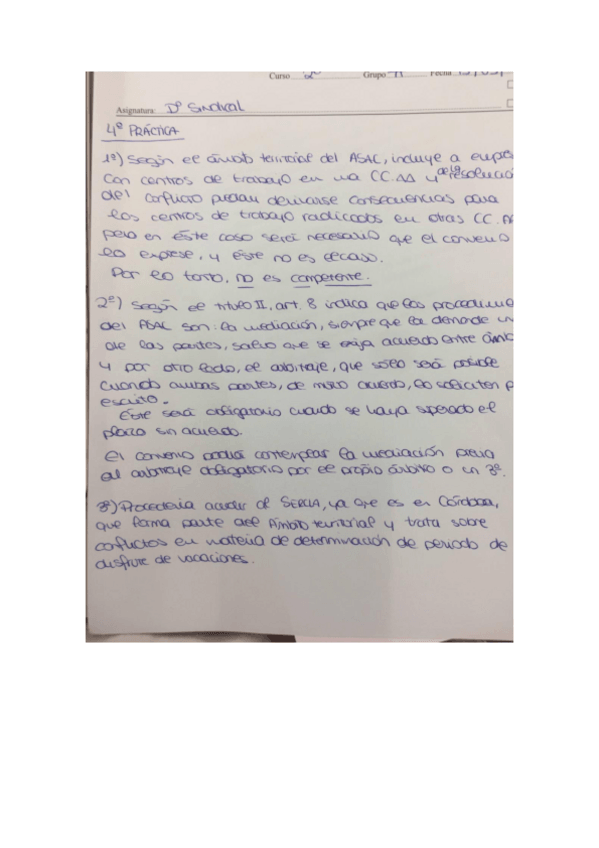 Curso 2º Grupo 11 Fecha
Asignatura: Dº Sindical
4º PRÁCTICA
1º) Según el ámbito territorial del ASAC, incluye a empres
con centros de trabajo en una CC.AA y de la resolució
del conflicto puedan derivarse consecuencias para
los centros de trabajo radicados en otras CC.AA
pero en éste caso será necesario que el convenio
lo exprese, y éste no es el caso.
Por lo tanto, no es competente.
2º) Según el título II, art. 8 indica que los procedimie
del ASAC son: la mediación, siempre que la demande un
de las partes, salvo que se exija acuerdo entre ambas
y por otro lado, el arbitraje, que sólo será posible
cuando ambas partes, de mutuo acuerdo, lo soliciten p
escrito.
Éste será obligatorio cuando se haya superado el
plazo sin acuerdo.
El convenio podrá contemplar la mediación previa
al arbitraje obligatorio por el propio árbitro o un 3º.
3º) Procedería acudir al SERCLA, ya que es en Córdoba,
que forma parte del Ámbito territorial y trata sobre
conflictos en materia de determinación de periodo de
disfrute de vacaciones.